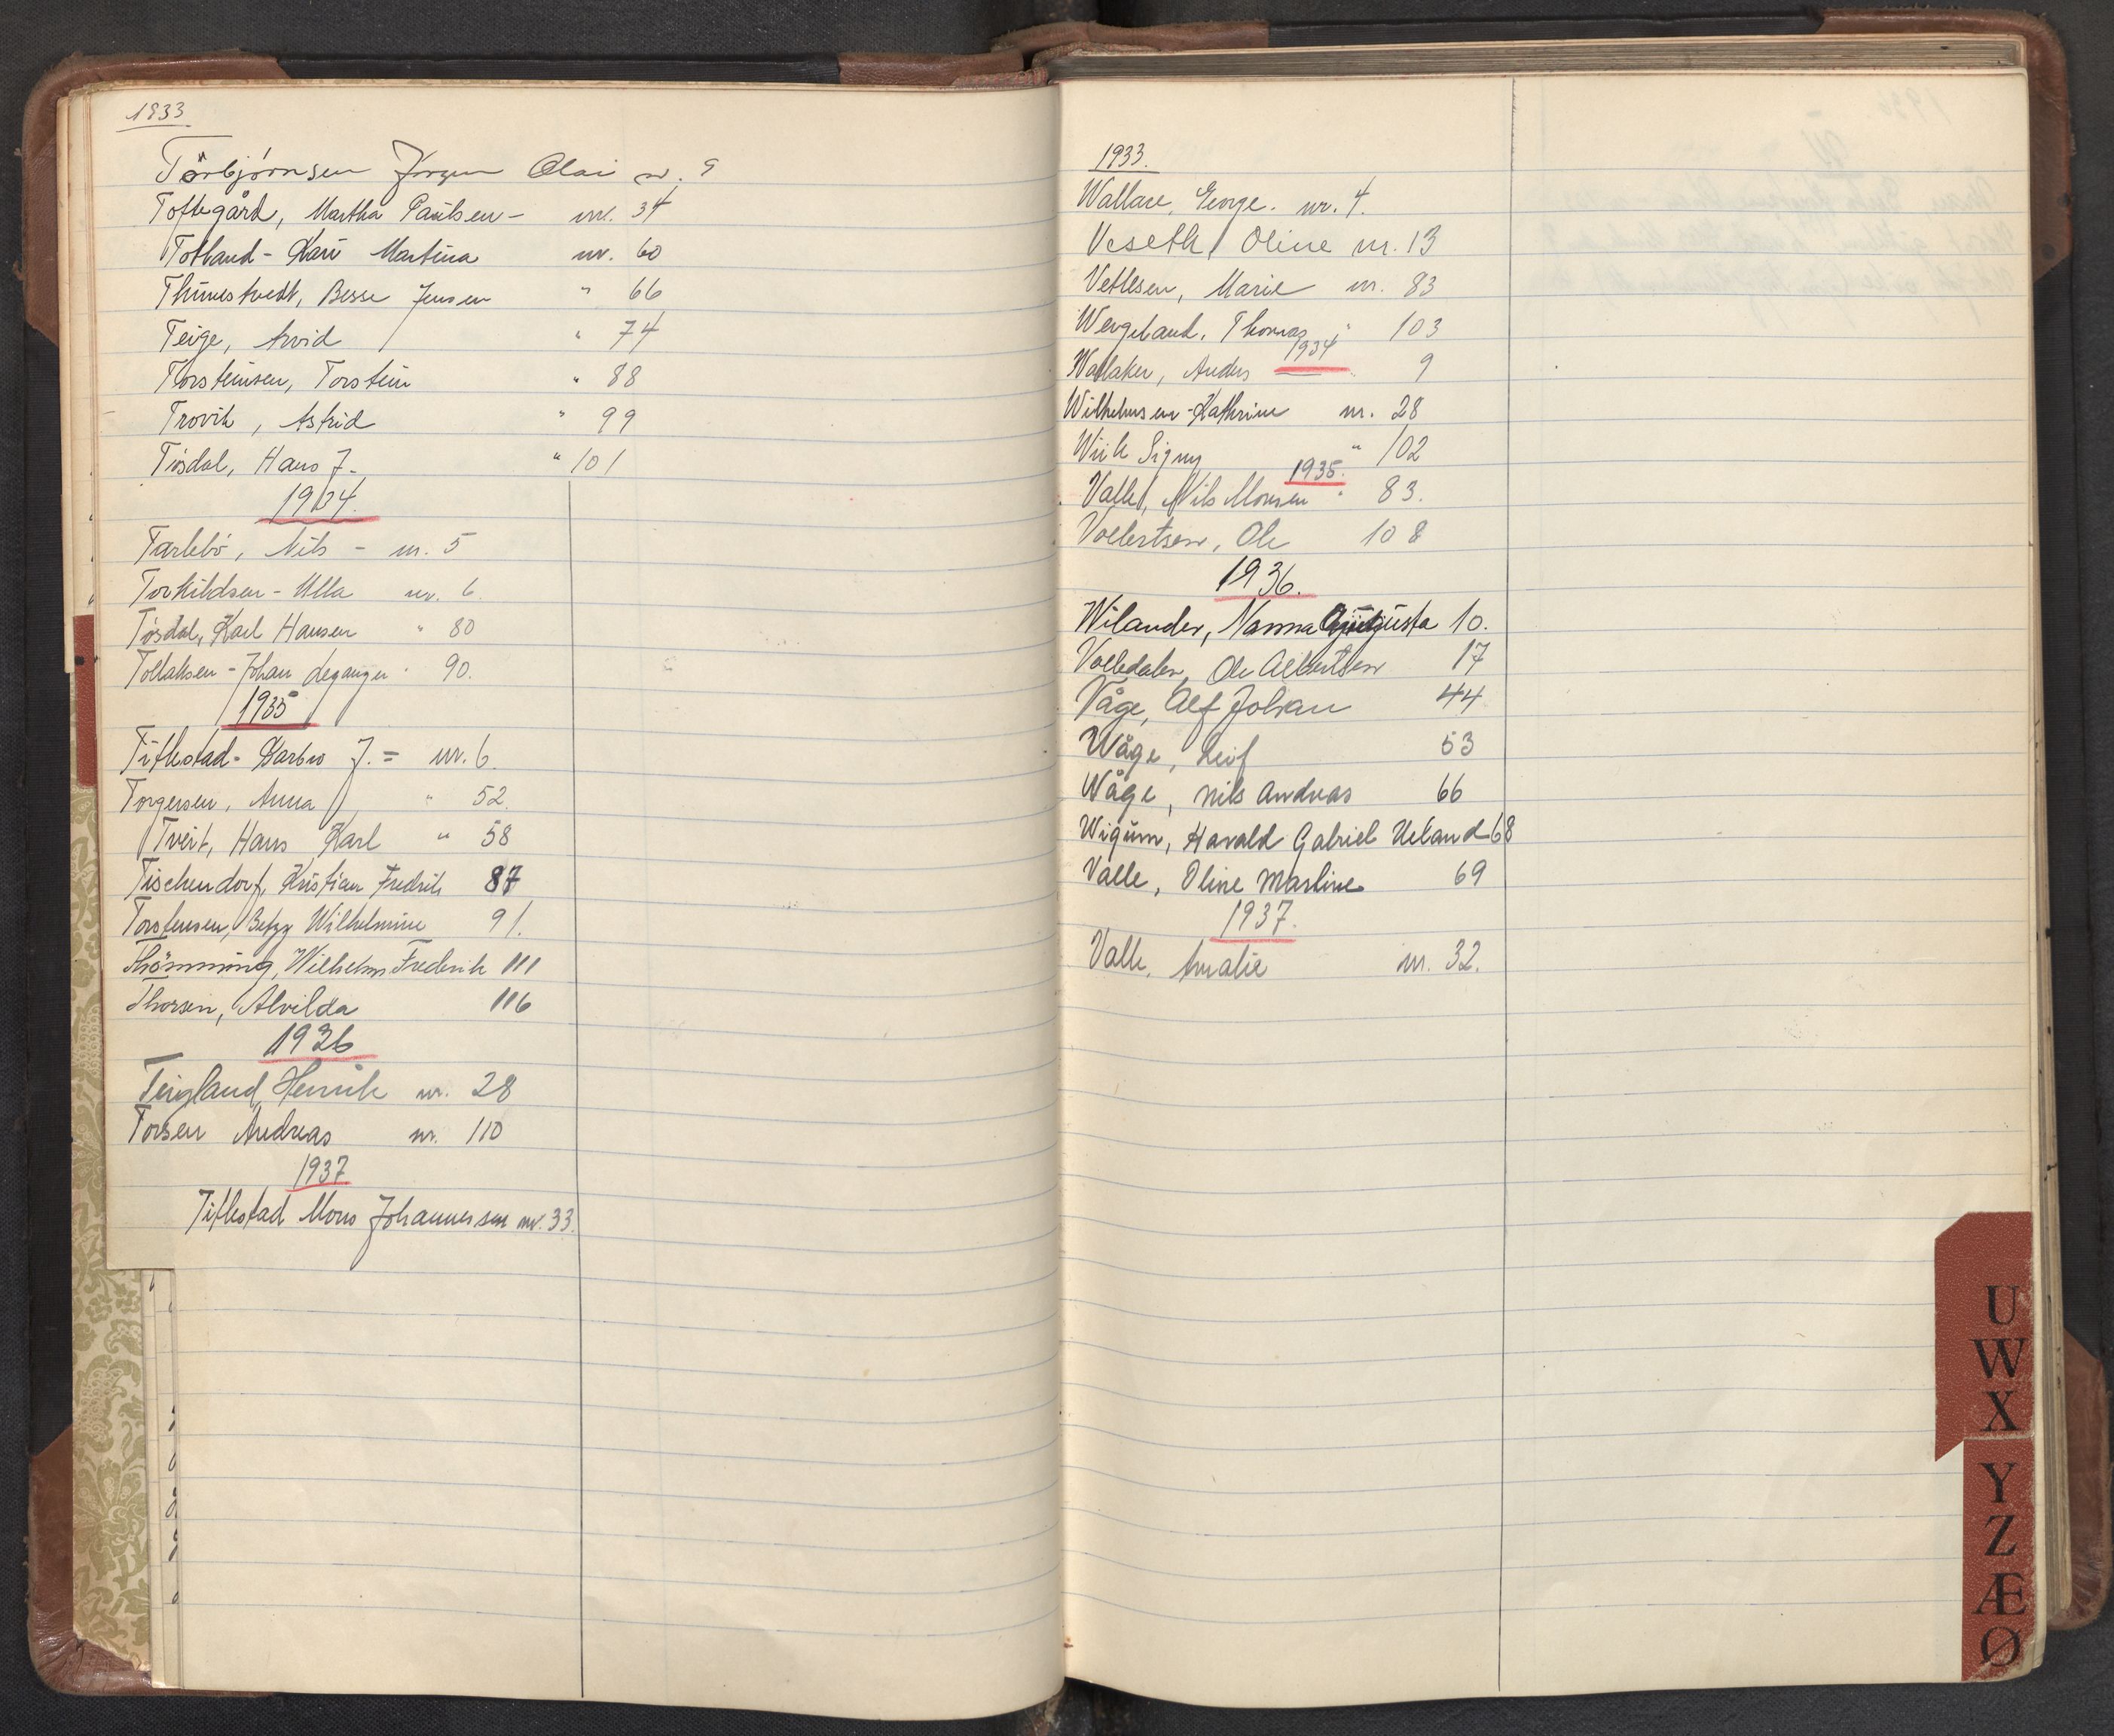 1933
Torbjørnsen Jørgen Olai nr. 9
Toftegård, Martha Paulsen - nr. 34
Totland - Kari Martina nr. 60
Thunestvedt, Besse Jensen " 66
Teige, Arvid " 74
Torsteinsen, Torstein " 88
Trovik, Astrid " 99
Tøsdal, Hans J. " 101
1934.
Tarlebø, Nils - nr. 5
Torkildsen - Ulla nr. 6.
Tøsdal, Karl Hansen " 80
Tollaksen - Johan Leganger " 90.
1935
Tiflestad - Barbro J. = nr. 6
Torgersen, Anna " 52.
Tveit, Hans Karl " 58
Tischendorf, Kristian Fredrik 87
Torstensen, Betzy Wilhelmine 91.
Thömming, Wilhelm Frederik 111
Thorsen, Alvilda 116
1936
Teigland, Henrik nr. 28
Torsen Andreas nr. 110
1937
Tiflestad Mons Johannessen nr. 33.
1933.
Wallace, George. nr. 4.
Veseth, Oline nr. 13
Vetlesen, Marie nr. 83
Wergeland, Thomas " 103
1934
Wallaker, Anders 9
Wilhelmsen - Kathrine nr. 28
Wiik Signy " 102
1935.
Valle, Nils Monsen " 83.
Volbertsen, Ole 108
1936.
Wilander, Nanna Augusta 10.
Volledalen, Ole Albertsen 17
Våge, Alf Johan 44
Wåge, Leif 53
Wåge, Nils Andreas 66
Wigum, Harald Gabriel Ueland 68
Valle, Oline Martine 69
1937.
Valle, Amalie nr. 32.
U
W
X
Y
Z
Æ
Ø